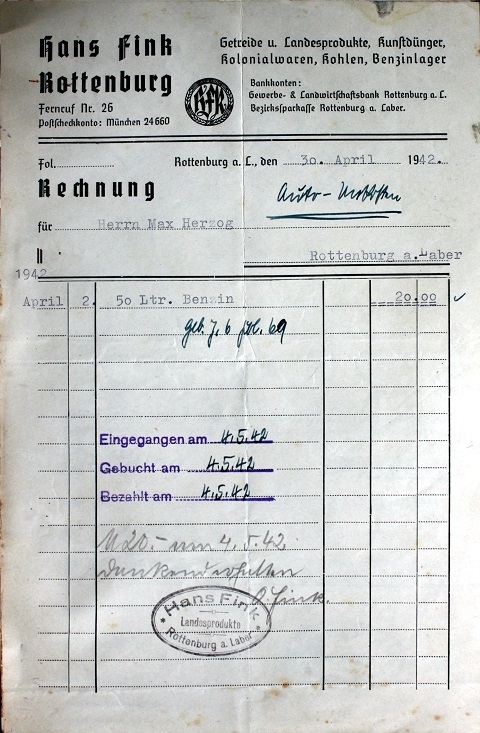 Hans Fink
Rottenburg
Fernruf Nr. 26
Postscheckkonto: München 24660
Getreide u. Landesprodukte, Kunstdünger,
Kolonialwaren, Kohlen, Benzinlager
HFR
Bankkonten:
Gewerbe- & Landwirtschaftsbank Rottenburg a. L.
Bezirkssparkasse Rottenburg a. Laber.
Fol. Rottenburg a. L., den 30. April 1942.
Rechnung
Auto-Unkosten
für Herrn Max Herzog
Rottenburg a. Laber
1942
April 2. 50 Ltr. Benzin 20.00
geb. J. 6 fol. 69
Eingegangen am 4.5.42
Gebucht am 4.5.42
Bezahlt am 4.5.42
M 20.- am 4.5.42
dankend erhalten
Fink.
Hans Fink
Landesprodukte
Rottenburg a. Laber